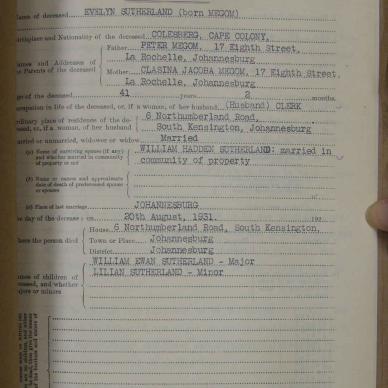 Name of deceased EVELYN SUTHERLAND (born MEGOM)
Birthplace and Nationality of the deceased COLESBERG, CAPE COLONY,
Names and Addresses of the Parents of the deceased
Father PETER MEGOM, 17 Eighth Street,
La Rochelle, Johannesburg
Mother CLASINA JACOBA MEGOM, 17 Eighth Street,
La Rochelle, Johannesburg
Age of the deceased 41 years 2 months.
Occupation in life of the deceased, or, if a woman, of her husband (Husband) CLERK
Ordinary place of residence of the deceased, or, if a woman, of her husband
6 Northumberland Road,
South Kensington, Johannesburg
Married or unmarried, widower or widow Married
(a) Name of surviving spouse (if any) and whether married in community of property or not
WILLIAM HADDEN SUTHERLAND: married in
community of property
(b) Name or names and approximate date of death of predeceased spouse or spouses
(c) Place of last marriage JOHANNESBURG
The day of the decease: on 20th August, 1931. 192
Where the person died
House 6 Northumberland Road, South Kensington,
Town or Place Johannesburg
District Johannesburg
Names of children of deceased, and whether majors or minors
WILLIAM EWAN SUTHERLAND - Major
LILIAN SUTHERLAND - Minor